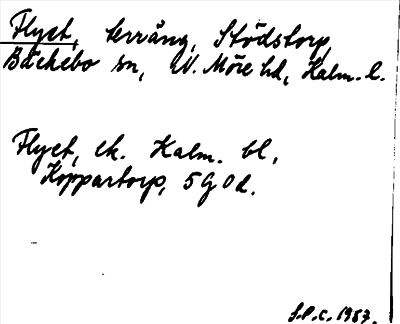 Flyet, terräng, Stödstorp,
Bäckebo sn, N. Möre hd, Kalm. l.
Flyet, ek. Kalm. bl,
Koppartorp, 5 G 0 d.
S.P.C. 1983.